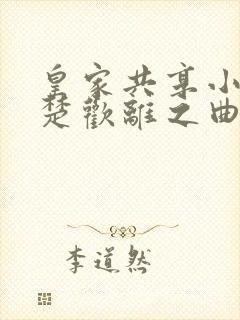 皇家共享小
楚歡離之曲
李道然